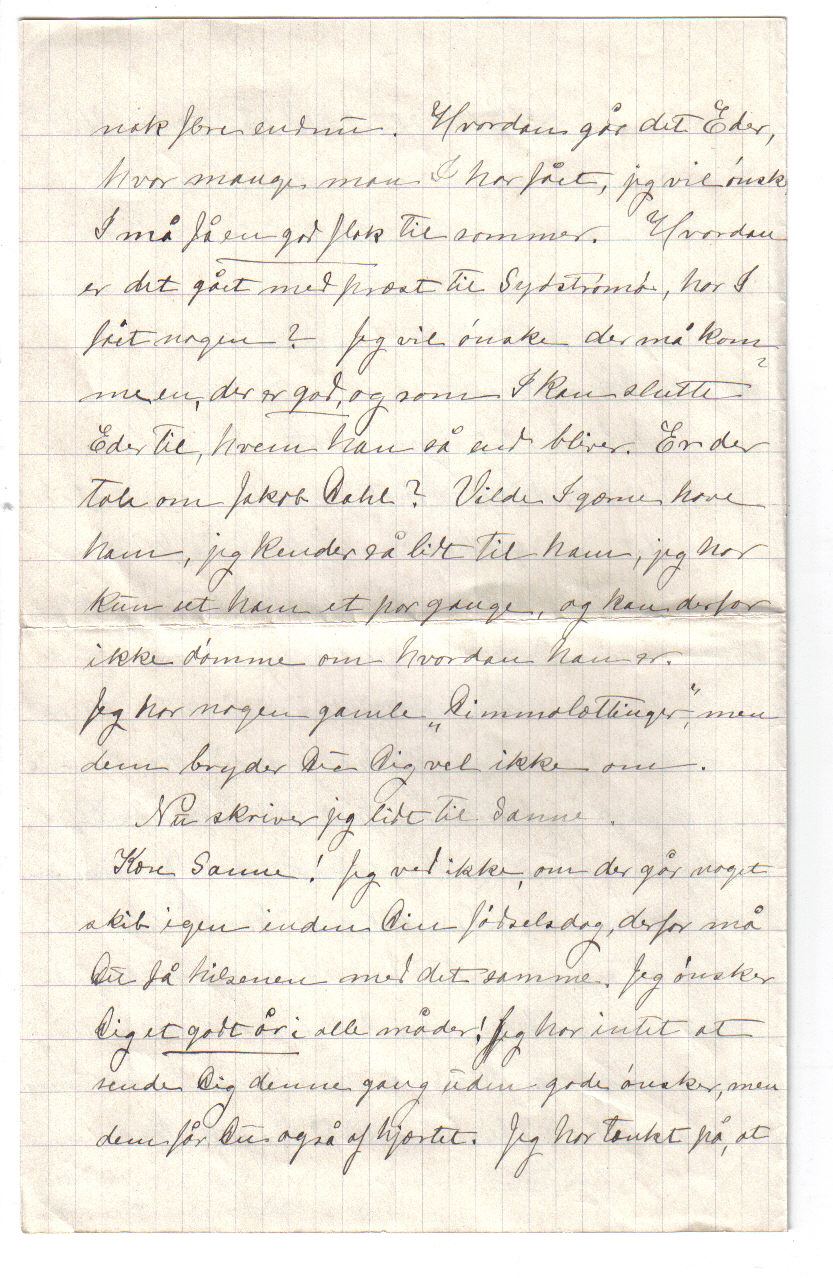 nok flere endnu. Hvordan går det Eder,
hvor mange man I har fået, jeg vil ónsk
I må få en god flok til sommer. Hvordan
er det gået med præst til Sydstrómó, har I
fået nogen? Jeg vil ónske der må kom-
me en, der er god, og som I kan slutte
Eder til, hvem han så end bliver. Er der
tale om Jakob Dahl? Vilde I gærne have
ham, jeg kender så lidt til ham, jeg har
kun set ham et par gange, og kan derfor
ikke dómme om hvordan han er.
Jeg har nogen gamle „Dimmalættinger“, men
dem bryder Du Dig vel ikke om.
Nu skriver jeg lidt til Sanne.
Kære Sanne! Jeg ved ikke, om der går noget
skib igen inden Din fódselsdag, derfor må
Du få hilsenen med det samme. Jeg ónsker
Dig et godt år i alle måder! Jeg har intet at
sende Dig denne gang uden gode ónsker, men
dem får Du også af hjærtet. Jeg har tænkt på, at